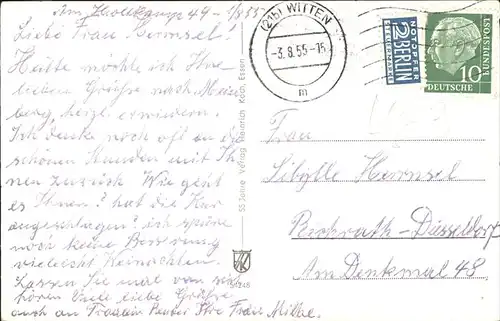 Am 49 - 1/8.55
Liebe Frau
Heute möchte ich Ihre
lieben Grüsse nach
berg, herzl. erwidern.
Ich denke noch oft an die
schönen Stunden mit Ih-
nen zurück. Wie geht
es Ihnen? hat die Kur
angeschlagen? ich spüre
noch keine Besserung
vieleicht Weinachten.
Lassen Sie mal von sich
hören Viele liebe Grüsse
auch an Ihre Frau Milke.
55 Jahre Verlag Heinrich Koch, Essen
(21b) WITTEN
-3.8.55-15
m
NOTOPFER
2 BERLIN
STEUERMARKE
10
DEUTSCHE
BUNDESPOST
Frau
Sibylle
Düsseldorf
Am Denkmal 48